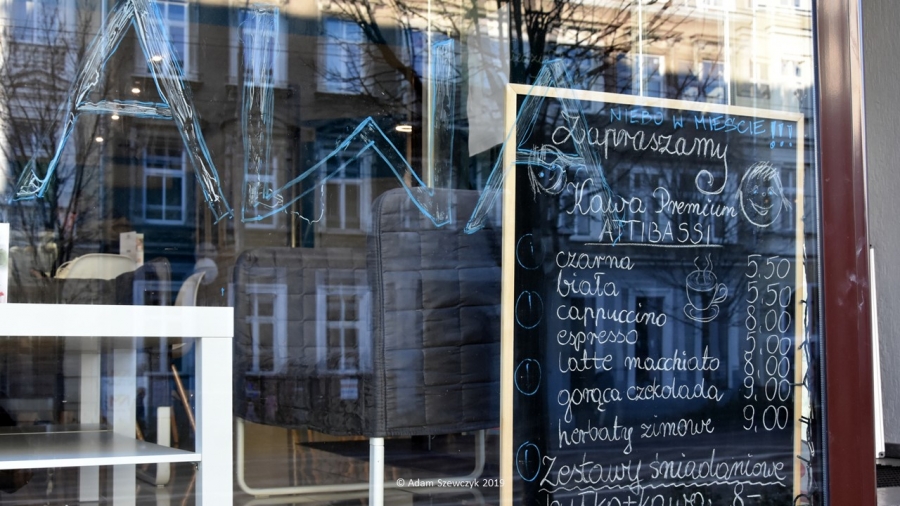 NIEBO W MIEŚCIE !!!
Zapraszamy
Kawa Premium
ATTIBASSI
czarna 5,50
biała 5,50
cappuccino 8,00
espresso 5,00
latte macchiato 8,00
gorąca czekolada 9,00
herbaty zimowe 9,00
Zestawy śniadaniowe
8-
© Adam Szewczyk 2019